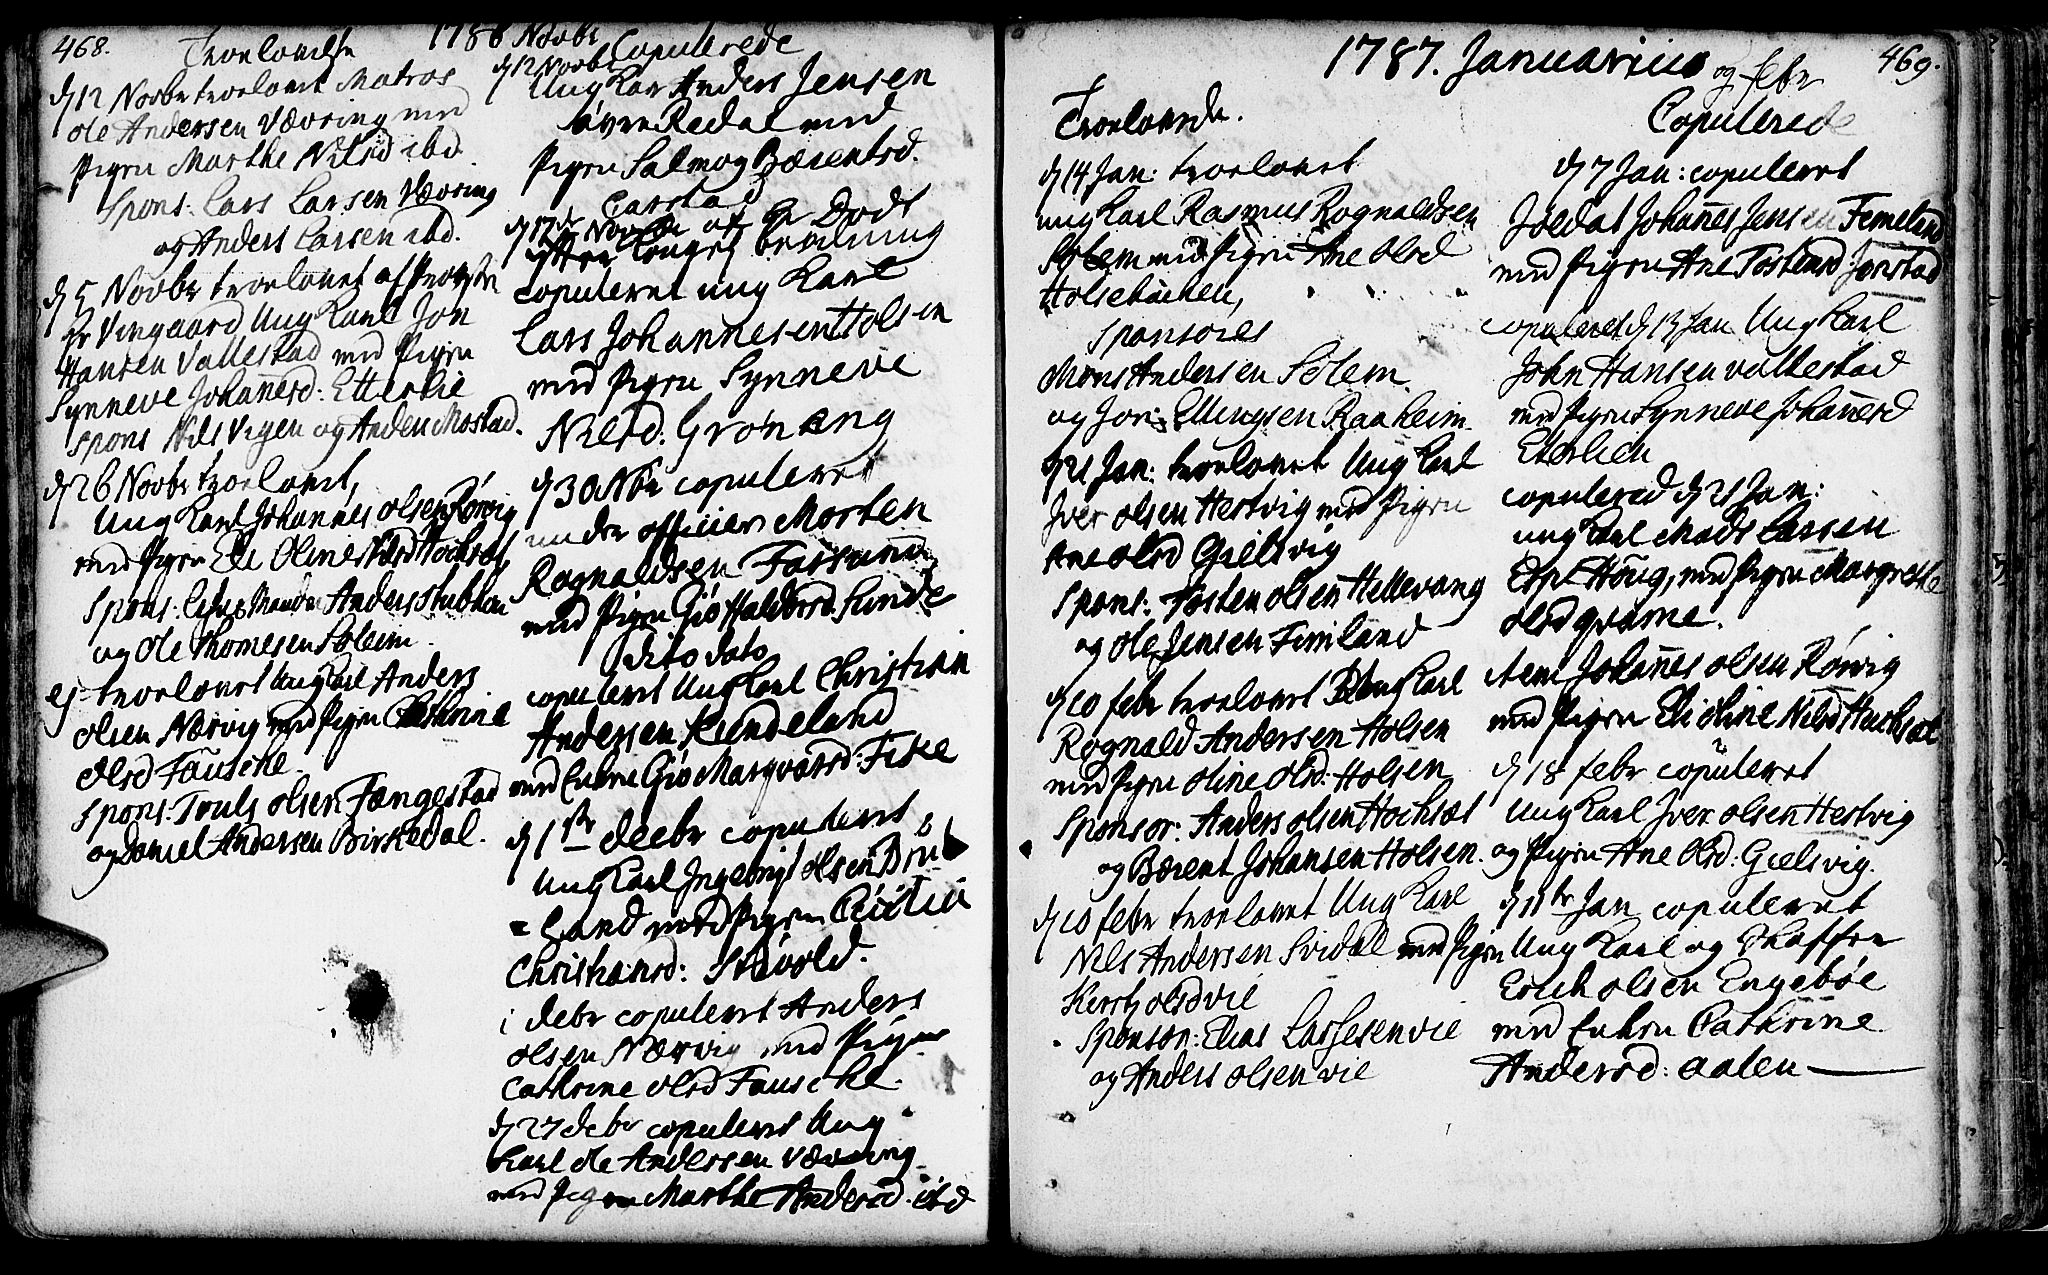 468.
1786 Novbr
Troelovede
d 12 Novbr troelovet Matros
Ole Andersen Vævring med
Pigen Marthe Nilsd ibd.
Spons: Lars Larsen Vævring
og Anders Larsen ibd.
d 5 Novbr troelovet af Provsten
Hr Vingaard Ung Karl Jon
Hansen Vallestad med Pigen
Synneve Johañesd: Etterlie
Spons Nils Vigen og Anders Mostad.
d 26 Novbr troelovet,
Ung Karl Johannes olsen Rørvig
med Pigen Eli Oline Nilsd Hochsæt,
Spons: Anders Stubhau
og Ole Thomesen Solem.
ej troelovet Ung Karl Anders
olsen Nærvig med Pigen Cathrine
Olsd Fauscke.
Spons: Trouls olsen Fængestad
og Daniel Andersen Birkedal.
Copulerede
d 12 Novbr
Ung Kar Anders Jensen
øvre Redal med
Pigen Salmog Bærentsd.
Carstad
d 17de Novbr af Hr Dodt
efter Kongel bevilning
copuleret ung Karl
Lars Johannesen Holsen
med Pigen Synneve
Nilsd. Grønæng
d 30 Nbr copuleret
under officier Morten
Rognaldsen Fossum
med Pigen Giø Haldorsd. Sunde
dito dato
copuleret Ung Karl Christian
Andersen Kundeland
med Enken Giø Marqvardsd: Fiske
d 1ste decbr copuleret
Ung Karl Ingebrigt olsen Bru
= Land med Pigen
Christiansd: Støvold.
i debr copuleret Anders
olsen Nærvig med Pigen
Cathrine olsd Fauscke.
d 27 debr copuleret Ung
Karl Ole Andersen Vævring
med Pigen Marthe Andersd. ibd
1787. Januarius og febr
469.
Troelovede.
d 14 Jan: troelovet
ung Karl Rasmus Rognaldsen
Solem med Pigen Ane Olsd
Holsebachen,
Sponsores
Mons Andersen Solem
og Jon Ellingsen Raaheim.
d 21 Jan: troelovet Ung Karl
Iver olsen Hestvig med Pigen
Ane olsd Gielsvig
Spons: Tosten olsen Hellevang
og Ole Jensen Fimland
d 10 febr troelovet Ung Karl
Rognald Andersen Holsen
med Pigen Oline Olsd: Holsen
Sponsor: Anders olsen Hochsæt
og Bærent Johansen Holsen.
d 10 febr troelovet Ung Karl
Nils Andersen Svidal med Pigen
Kersti olsd vie
Sponsor: Elias Lassesen vie
og Anders olsen vie
Copulerede
d 7 Jan: copuleret
Soldat Johañes Jensen Femeland
med Pigen Ane Tostensd Jonstad
copuleret d 13 Jan Ung Karl
John Hansen vallestad
med Pigen Synneve Johañesd
Eterlien
copulered d 21 Jan:
ung Karl Mads Larsen
Esp Høug, med Pigen Margrethe
Olsd qvame.
item Johañes olsen Rørvig
med Pigen Eli Oline Nilsd Hochsæt
d 18 febr copuleret
Ung Karl Iver olsen Hestvig
og Pigen Ane Olsd: Gielsvig.
d 11te Jan copuleret
Ung Karl og Skaffer
Erich olsen Engebøe
med Enken Cathrine
Andersd: aalen —